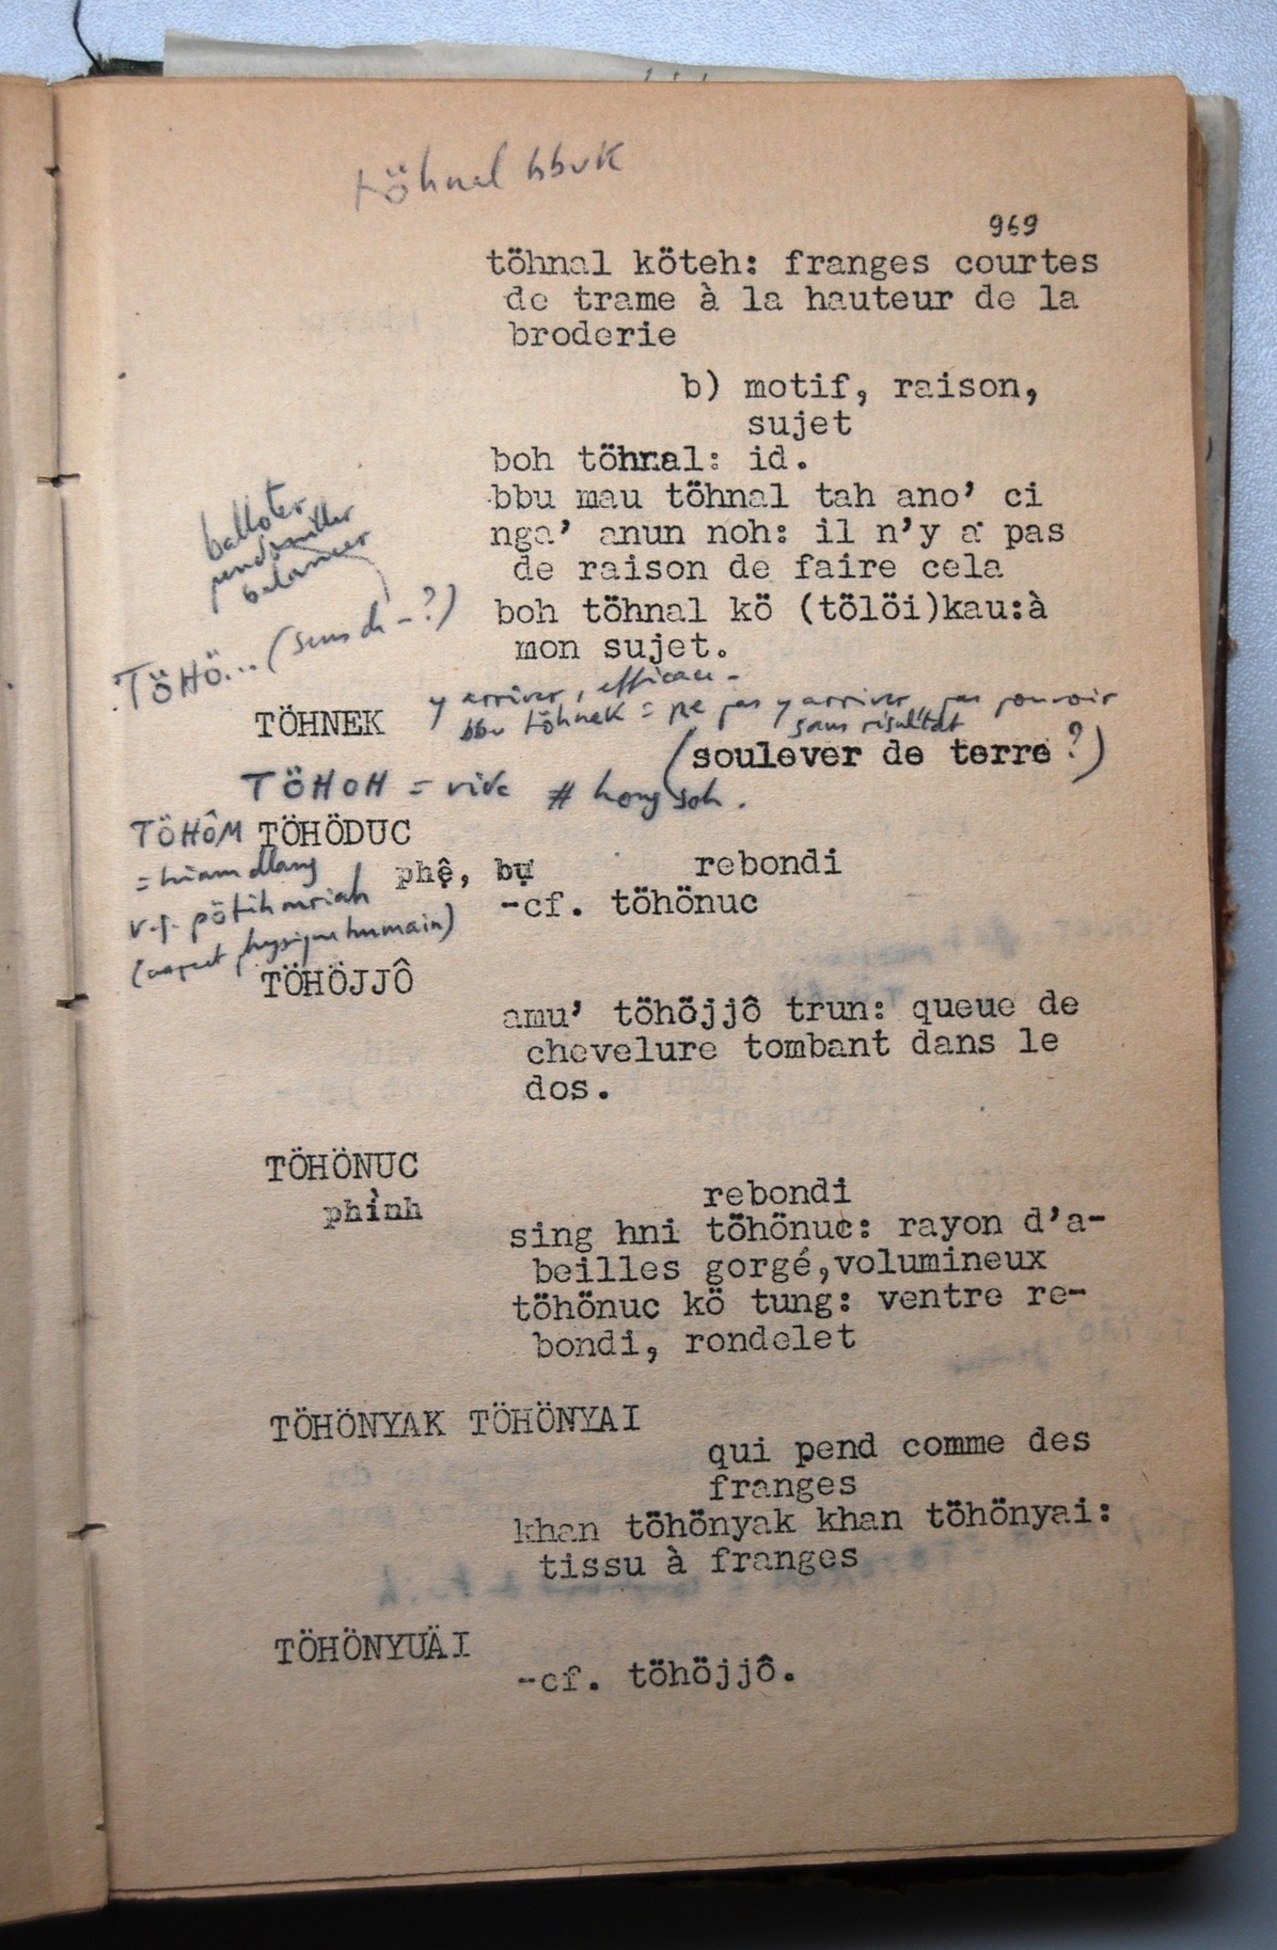 töhnal bbuk
969
töhnal köteh: franges courtes
de trame à la hauteur de la
broderie
b) motif, raison,
sujet
boh töhnal: id.
bbu mau töhnal tah ano' ci
nga' anun noh: il n'y a pas
de raison de faire cela
boh töhnal kö (tölöi)kau:à
mon sujet.
balloter
pendiller
balancer
TÖHÖ... (sens de -?)
TÖHNEK
y arriver, efficace -
bbu töhnek = ne pas y arriver, pas pouvoir
sans résultat
(soulever de terre?)
TÖHOH = vide # hong soh.
TÖHÔM TÖHÖDUC
= hiam dlang
v.f. pötih mriah
(aspect physique humain)
phệ, bự rebondi
-cf. töhönuc
TÖHÖJJÔ
amu' töhöjjô trun: queue de
chevelure tombant dans le
dos.
TÖHÖNUC
phình rebondi
sing hni töhönuc: rayon d'a-
beilles gorgé,volumineux
töhönuc kö tung: ventre re-
bondi, rondelet
TÖHÖNYAK TÖHÖNYAI
qui pend comme des
franges
khan töhönyak khan töhönyai:
tissu à franges
TÖHÖNYUÄI
-cf. töhöjjô.